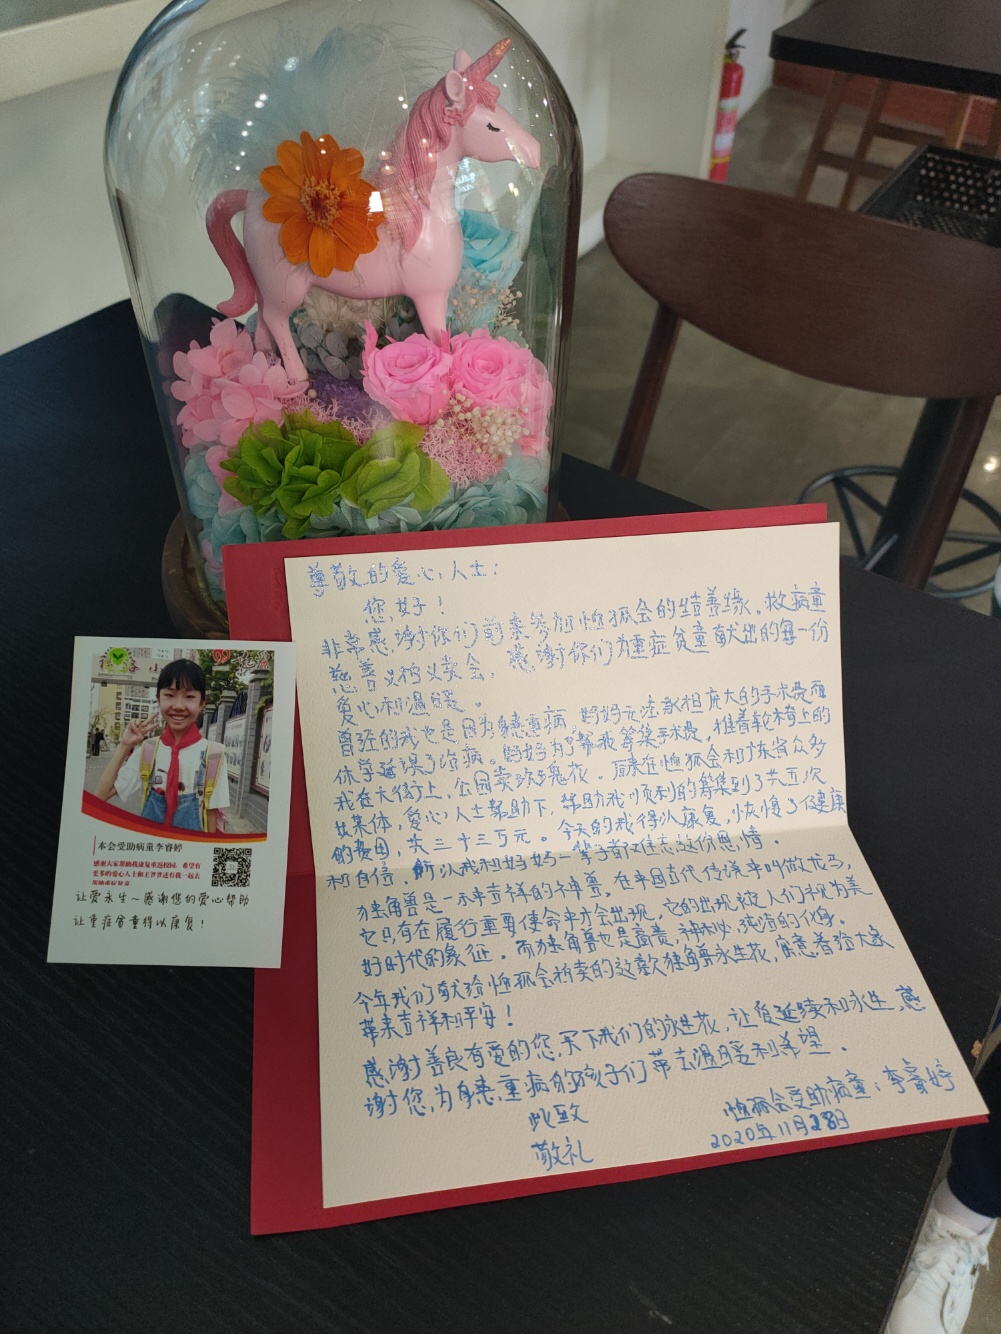 尊敬的爱心人士：
您好！
非常感谢你们前来参加恤孤会的结善缘。救病童
慈善义拍义卖会，感谢你们为重症贫童献出的每一份
爱心和温暖。
曾经的我也是因为身患重病，妈妈无法承担庞大的手术费而
休学延误了治病。妈妈为了帮我筹集手术费，推着轮椅上的
我在大街上，公园卖玫瑰花。后来在恤孤会和广东省众多
媒体，爱心人士帮助下，帮助我顺利的筹集到了共五次
的费用，共三十三万元。今天的我得以康复，恢复了健康
和自信，所以我和妈妈一辈子都不忘这份恩情。
独角兽是一种吉祥的神兽，在中国古代传说中叫做龙马，
它只有在履行重要使命中才会出现，它的出现被人们视为美
好时代的象征。而独角兽也是高贵，神秘，纯洁的化身。
今年我们献给恤孤会拍卖的这款独角兽永生花，寓意着给大家
带来吉祥和平安！
感谢善良有爱的您，买下我们的永生花，让爱延续和永生，感
谢您，为身患重病的孩子们带去温暖和希望。
此致
敬礼
恤孤会受助病童：李睿婷
2020年11月28日
本会受助病童李睿婷
感谢大家帮助我康复重返校园，希望有
更多的爱心人士和王梦菩还有我一起去
帮助重症贫童
让爱永生～感谢您的爱心帮助
让重症贫童得以康复！